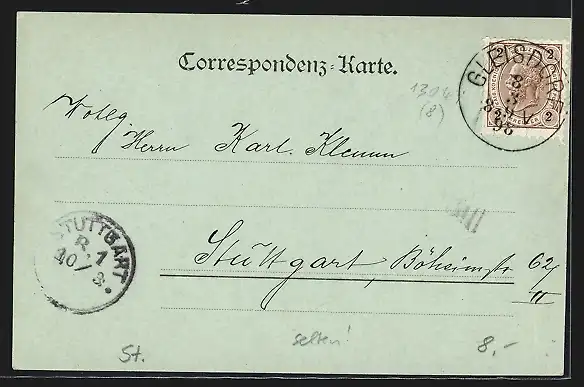 Correspondenz-Karte.
2 2
2 2
GLEISDORF
8
3
98
1304
(8)
Wohlg
Herrn Karl Klemm
STUTTGART
R. 1
10/3.
Stuttgart, Böheimstr 62/II
selten!
St.
8,-